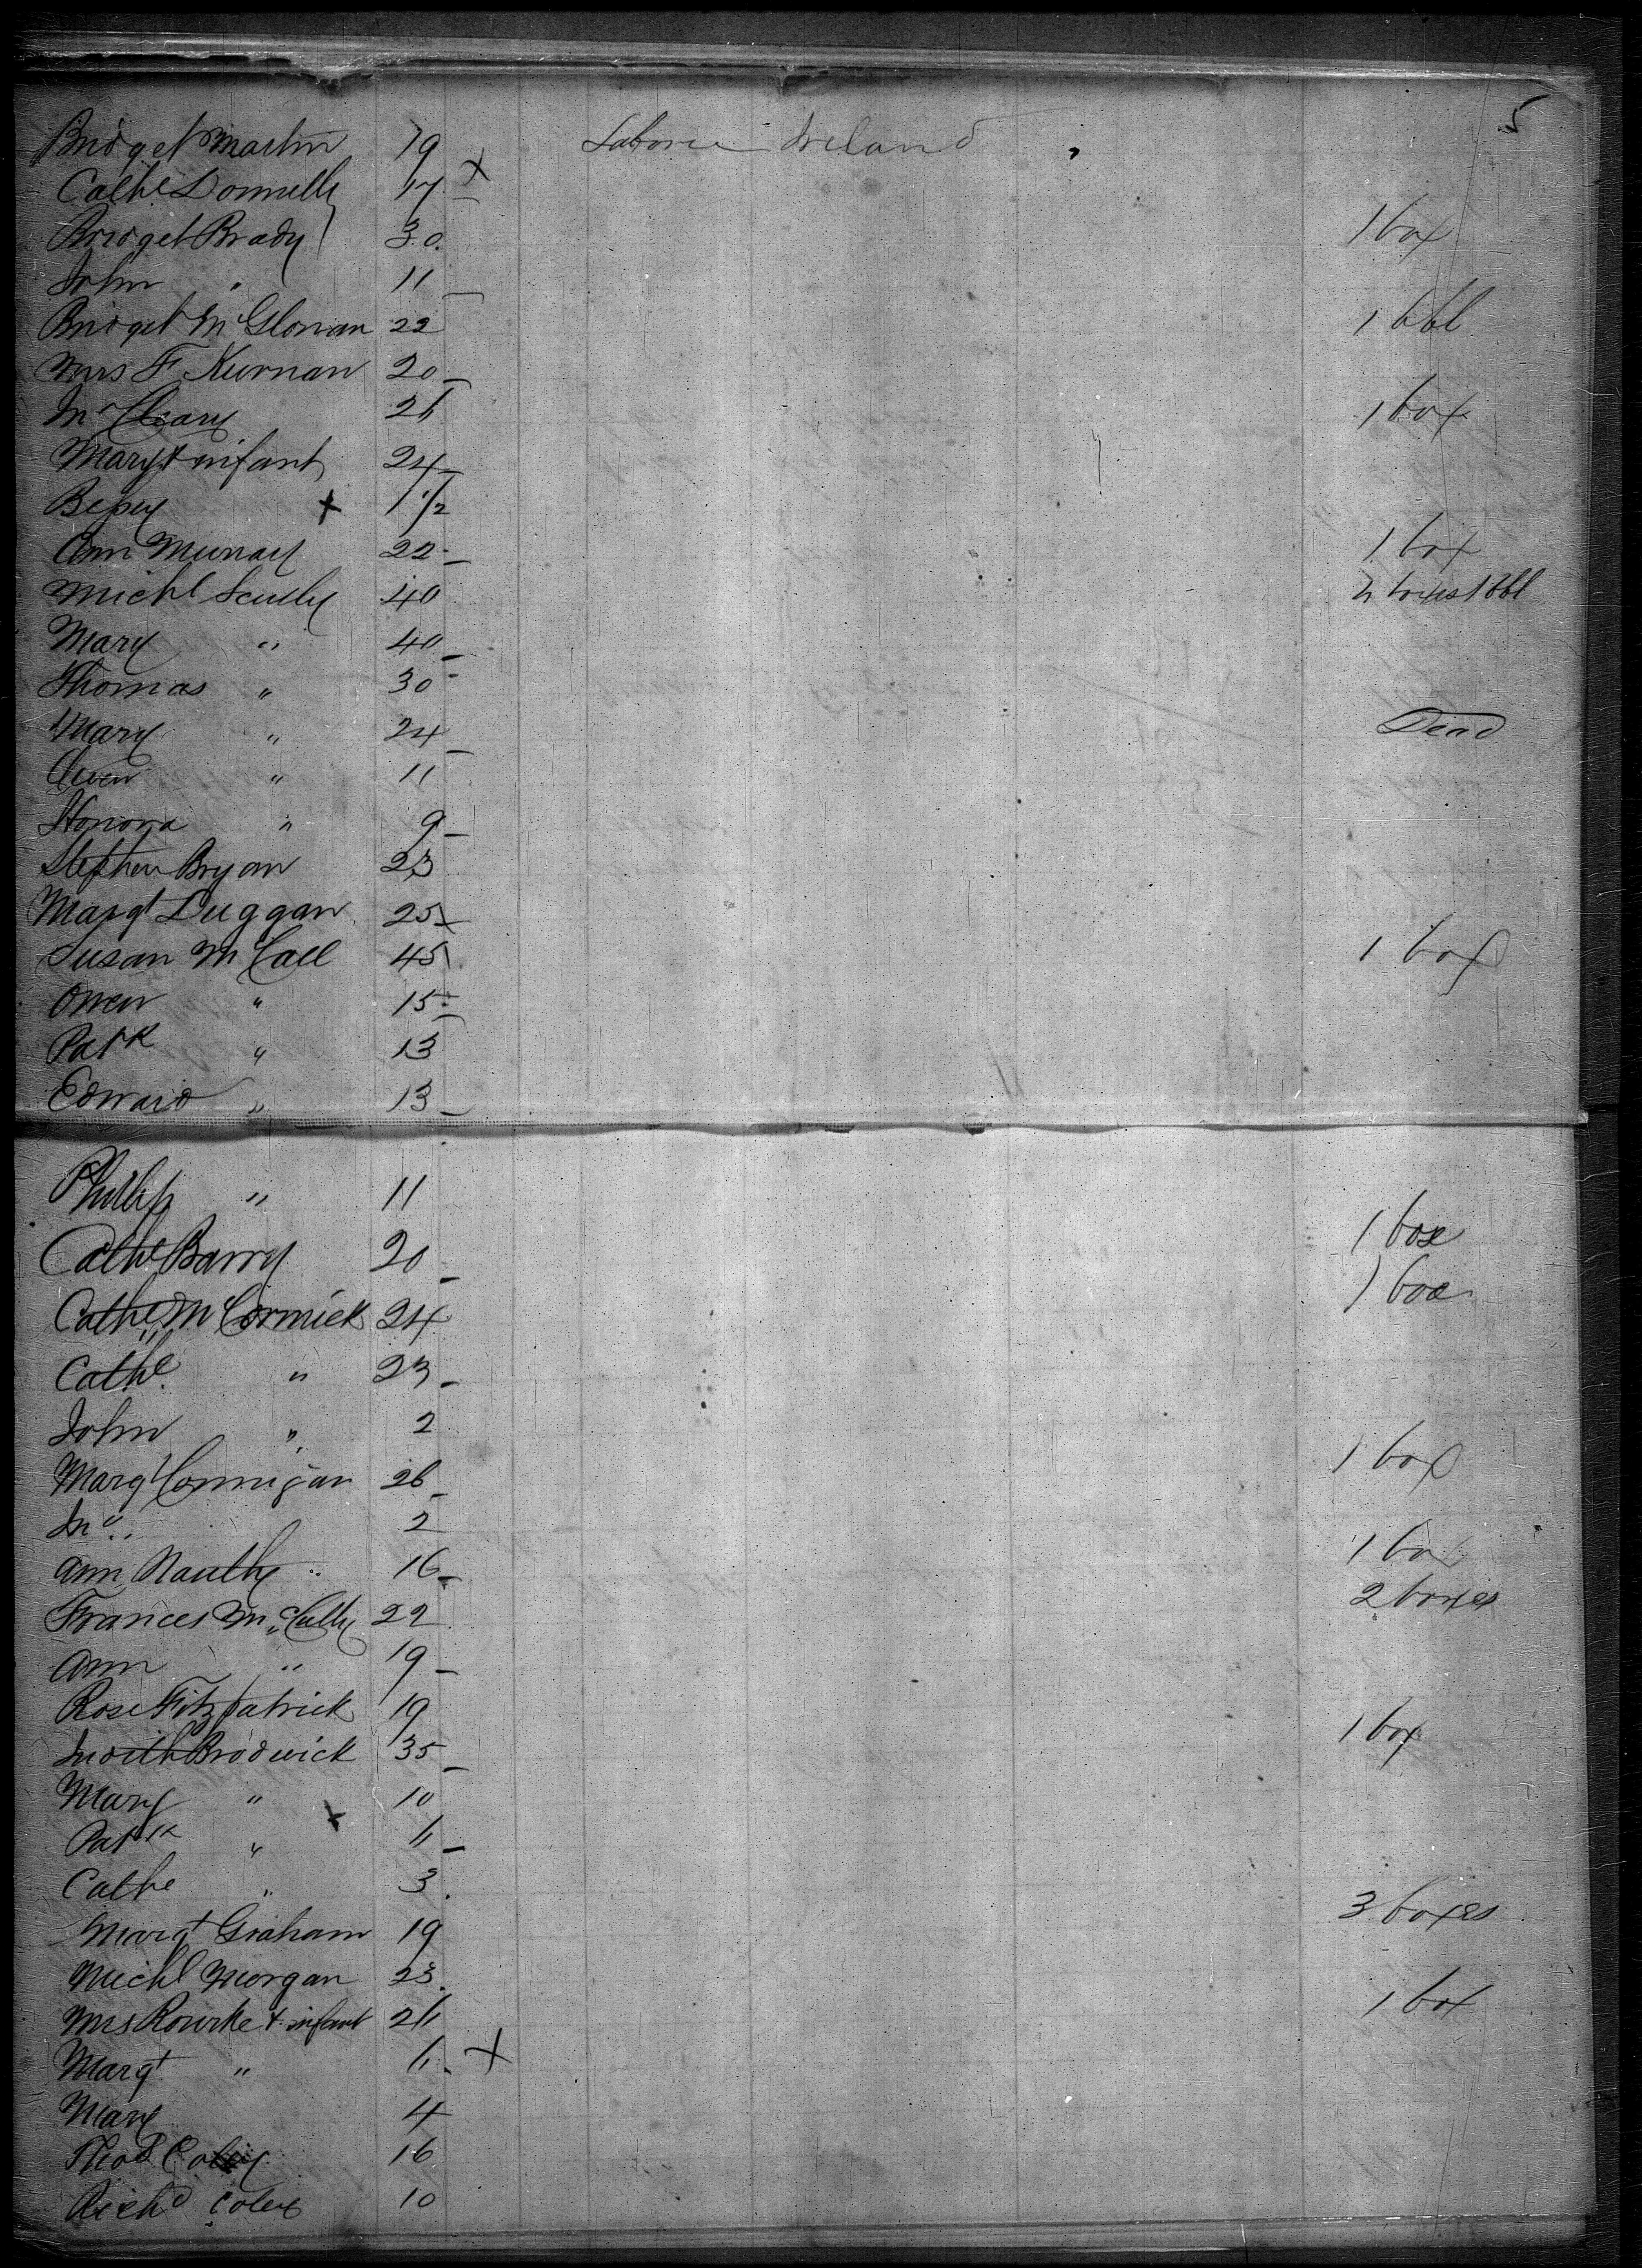 5
Bridget Martin 19 Laborer Ireland
Cathe Donnelly 17 X
Bridget Brady 30 1 box
John " 11
Bridget McGlonan 22 1 bbl
Mrs F Kiernan 20
McCleary 26 1 box
Mary & infant 24
Bessy X 1 1/2
Ann Murray 22 1 box
Michl Scully 40 2 boxes 1 bbl
Mary " 40
Thomas " 30
Mary " 24 Dead
Owen " 11
Honora " 9
Stephen Bryan 23
Margt Duggan 25
Susan McCall 45 1 box
Owen " 15
Patk " 13
Edward " 13
Phillip " 11
Cathe Barry 20 1 box
Cathe McCormick 24 1 box
Cathe " 23
John " 2
Margt Connigan 26 1 box
2
Ann 16 1 box
Frances McCully 22 2 boxes
Ann " 19
Rose Fitzpatrick 19
Judith Brodwick 35 1 box
Mary " 10
Patk " X 6
Cathe " 3
Margt Graham 19 3 boxes
Michl Morgan 23
Mrs Rourke & infant 26 1 box
Margt " 6 X
Mary 4
Thos Coley 16
Richd Coley 10